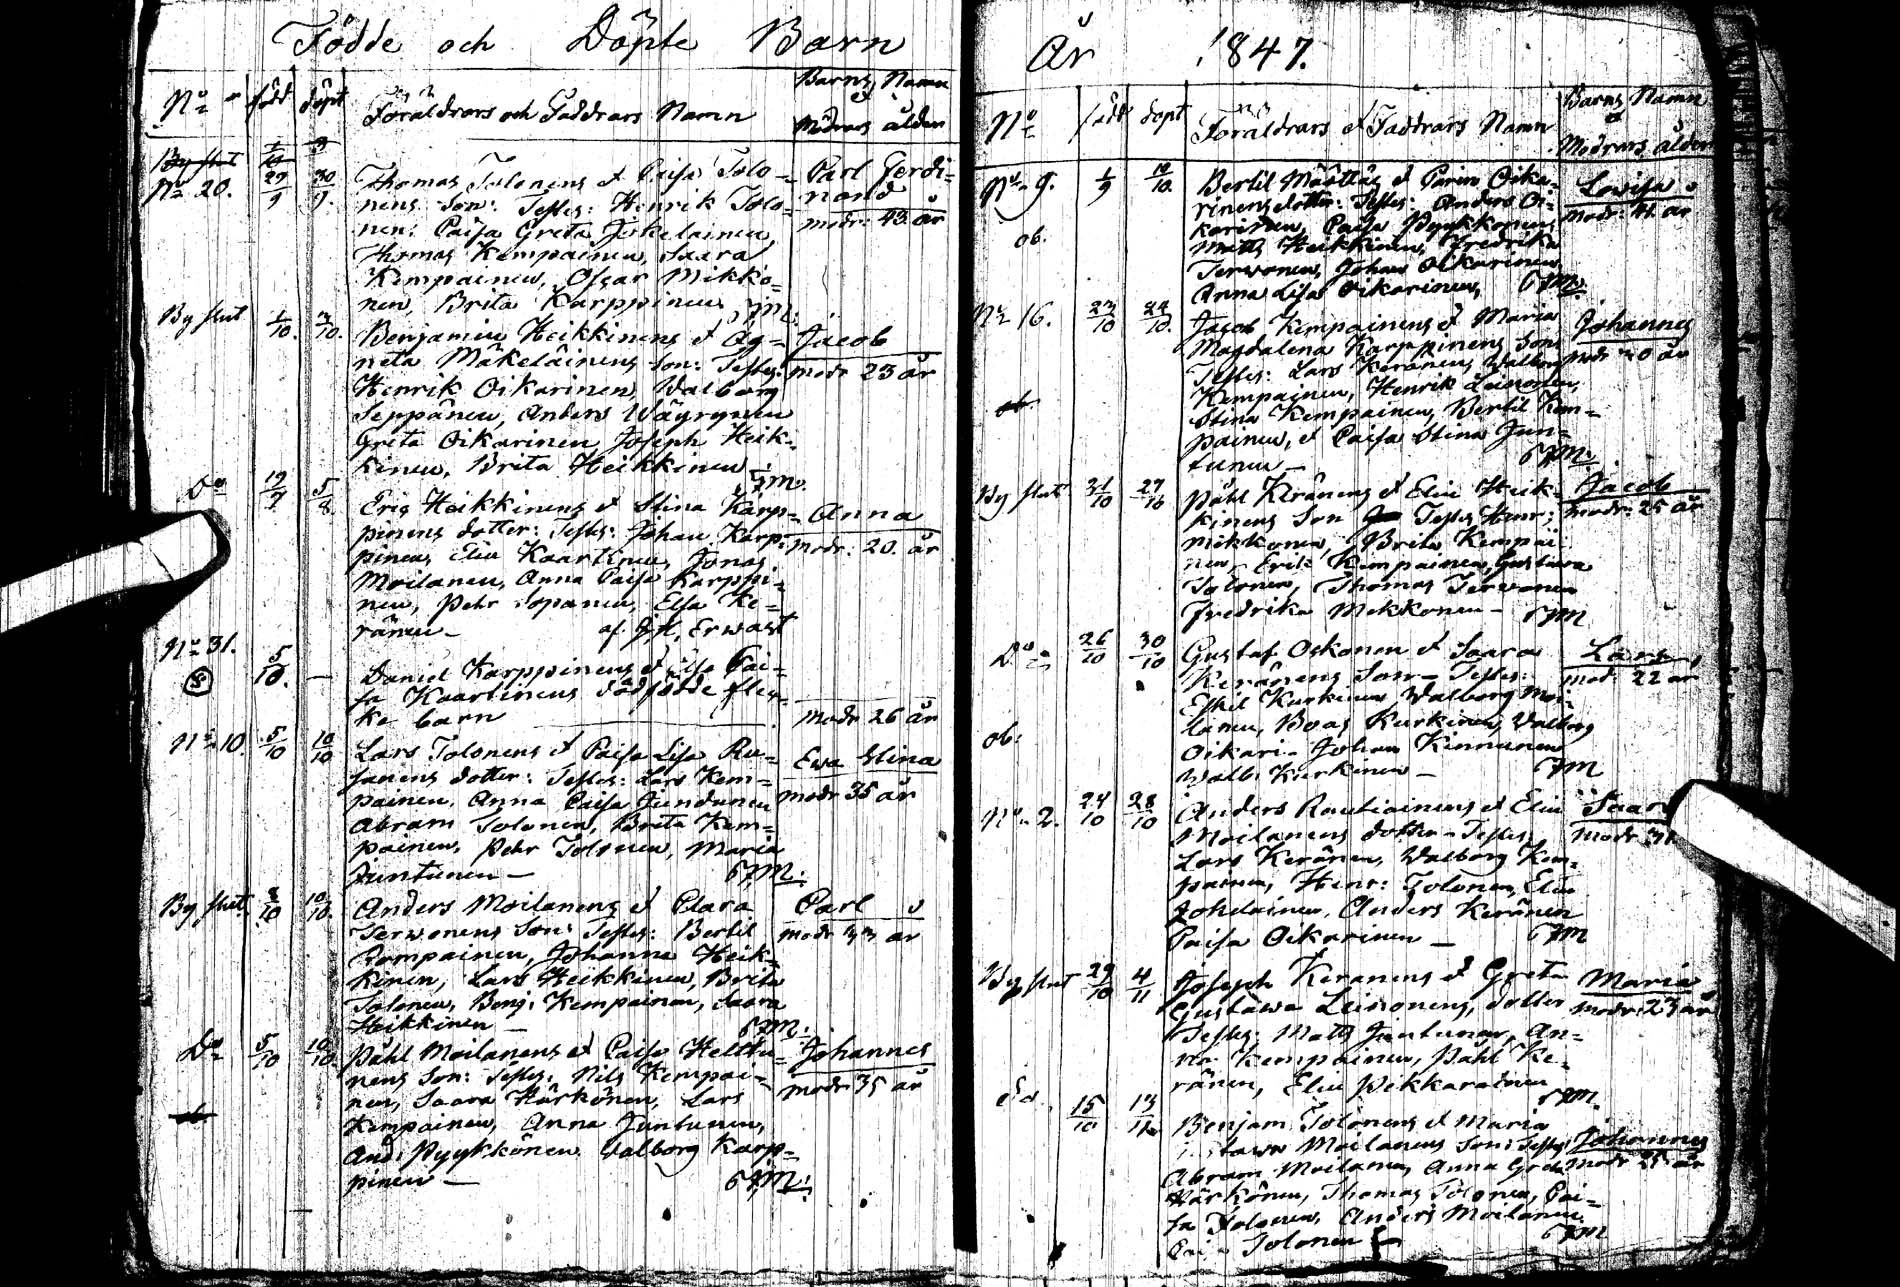 Födde och Döpte Barn
No född döpt Föräldrars och Faddrars Namn Barns Namn & Modrars ålder
By slut
No 20. 29/9 30/9. Thomas Tolonens et Caisa Tolo-
nens son: Testes: Henrik Tolo-
nen: Caisa Greta Jokelainen
Thomas Kempainen, Saara
Kempainen, Oscar Mikko-
nen, Brita Karppinen
Carl Ferdi-
nand
modr: 43 år
By slut 1/10. 3/10. Benjamin Heikkinens et Ag-
neta Mäkeläinens son: Testes:
Henrik Oikarinen, Walborg
Seppänen, Anders Wäyrynen
Greta Oikarinen Joseph Heik-
kinen, Brita Heikkinen
Jacob
modr 23 år
Do 19/7 5/8 Eric Heikkinens et Stina Karp-
pinens dotter: Testes: Johan Karp-
pinen, Elin Kaartinen, Jonas
Moilanen, Anna Caisa Karppi-
nen, Pehr Sopanen, Elsa Ke-
ränen - af J. H. Erwast
Anna
modr: 20. år
No 31. 5/10. — Daniel Karppinens et Cai-
sa Kaartinens dödfödde flic-
ka barn
modr 26 år
No 10. 5/10 10/10 Lars Tolonens et Caisa Lisa
dotter: Testes: Lars Kem-
painen, Anna Caisa Juntunen
Abram Tolonen, Brita Kem-
painen, Pehr Tolonen, Maria
Juntunen —
Ewa Stina
modr 35 år
By slut. 8/10 10/10. Anders Moilanens et Clara
Terwonens Son: Testes: Bertil
Kompainen, Johanna Heik-
kinen, Lars Heikkinen, Brita
Tolonen, Benj: Kempainen, Saara
Heikkinen —
Carl
modr 33 år
Do 5/10 10/10. Påhl Moilanens et Caisa Helttu-
nens Son: Testes: Nils Kempai-
nen, Saara Härkönen, Lars
Kempainen, Anna Juntunen,
And: Pyykkönen Valborg Karp-
pinen —
Johannes
modr 35 år
År 1847.
No född döpt Föräldrars et Faddrars Namn Barns Namn & Modrars ålder
No 9. 1/9 10/10. Bertil Määttäs et Carin Oika-
rinens dotter: Testes: Anders Oi-
karinen, Caisa Pyykkönen
Matts Heikkinen, Fredrika
Terwonen, Johan Oikarinen
Anna Lisa Oikarinen,
ob.
Lovisa
modr: 41 år
No 16. 23/10 24/10. Jacob Kempainens et Maria
Magdalena Karppinens Son
Testes: Lars Keränen, Walborg
Kempainen, Henrik Leinonen,
Stina Kempainen, Bertil Kem-
painen, et Caisa Stina Jun-
tunen —
Johannes
modr 20 år
By slut 21/10 27/10 Påhl Keränens et Elin Heik-
kinens Son Testes Henr:
Mikkonen, Brita Kempai
nen, Erik Kempainen, Gustava
Tolonen, Thomas Terwonen
Fredrika Mikkonen —
Jacob
modr: 25 år
Do 26/10 30/10 Gustaf Oskonen et Saara
Keränens Son — Testes:
Eskil Kurkinen Walborg Moi-
lanen, Boas Kurkinen, Walborg
Oikari- Johan Kinnunen
Walb: Kurkinen —
ob:
Lars
mod: 22 år
No 2. 24/10 28/10 Anders Rautiainens et Elin
Moilanens dotter — Testes:
Lars Keränen, Walborg Kem-
painen, Henr: Tolonen, Elin
Jokelainen, Anders Keränen
Caisa Oikarinen —
Saar
modr 31
By slut 29/10 4/11 Joseph Keränens et Greta
Gustawa Leinonens, dotter
Testes: Matts Juntunen, An-
na Kempainen, Påhl Ke-
ränen, Elin Pikkarainen
Maria
modr: 23 år
15/10 13/11 Benjam: Tolonens et Maria
Moilanens Son: Testes
Abram Moilanen, Anna Greta
Härkönen, Thomas Tolonen, Cai-
sa Tolonen, Anders Moilanen
Tolonen
Johannes
modr 25 år